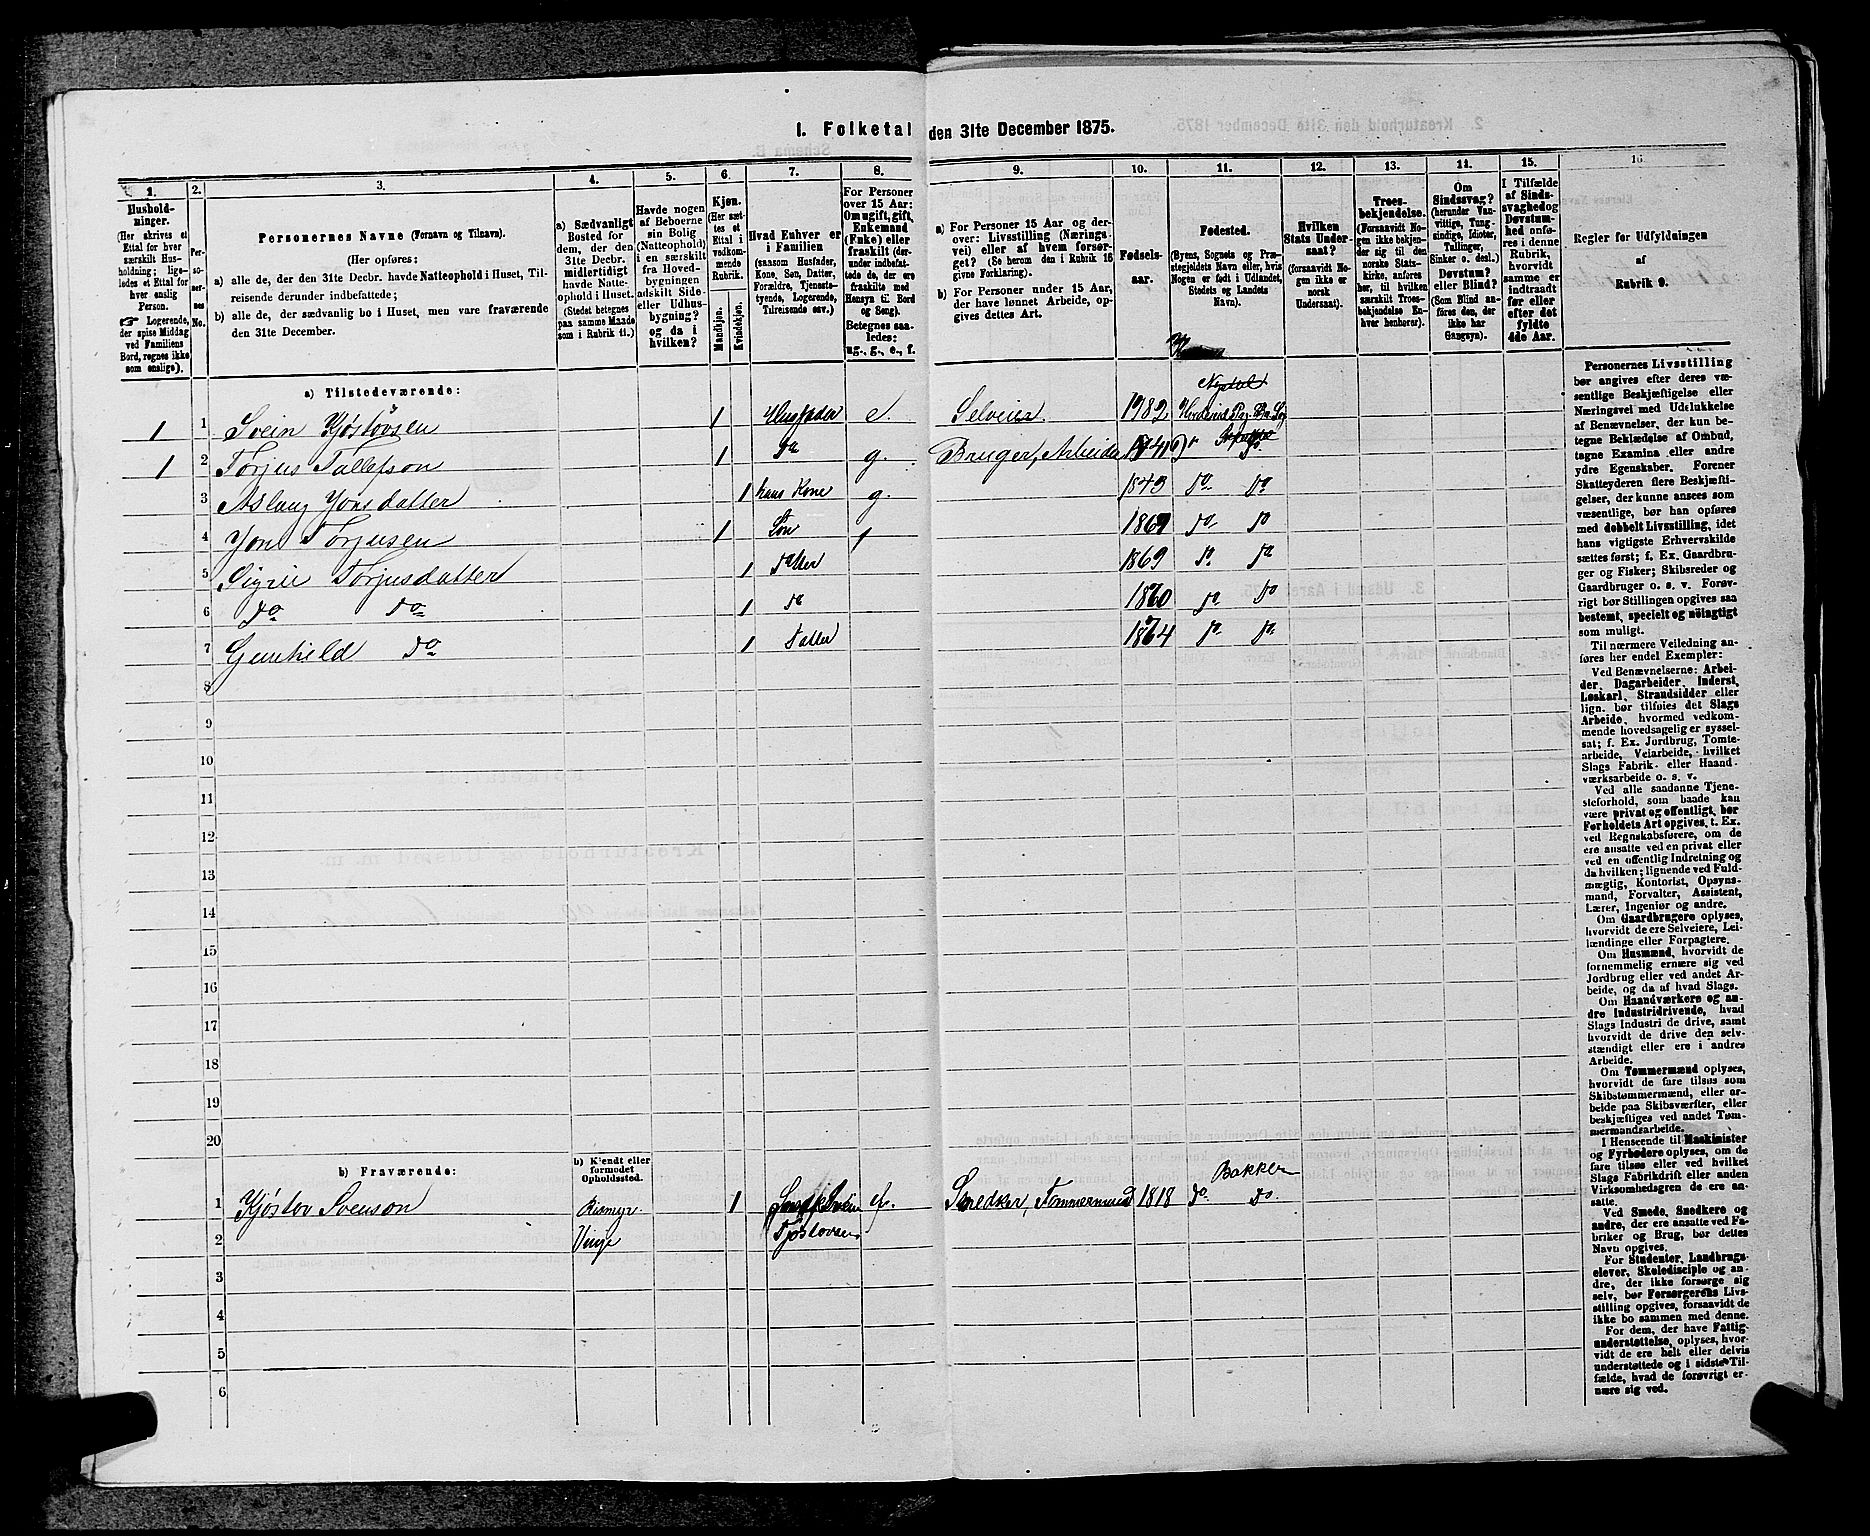 I. Folketal den 31te December 1875.
1. 2. 3. 4. 5. 6. 7. 8. 9. 10. 11. 12. 13. 14. 15. 16.
Husholdninger.
(Her skrives et
Ettal for hver
særskilt Husholdning; ligeledes
et Ettal for
hver enslig
Person.
☞ Logerende,
der spise Middag
ved Familiens
Bord, regnes ikke
som enslige).
Personernes No.
Personernes Navne (Fornavn og Tilnavn).
(Her opføres:
a) alle de, der den 31te Decbr. havde Natteophold i Huset, Tilreisende
derunder indbefattede;
b) alle de, der sædvanlig bo i Huset, men vare fraværende
den 31te December.
a) Sædvanligt
Bosted for
dem, der den
31te Decbr.
midlertidigt
havde Natteophold
i Huset.
(Stedet betegnes
paa samme Maade
som i Rubrik 11.)
Havde nogen
af Beboerne
sin Bolig
(Natteophold)
i en særskilt
fra Hovedbygningen
adskilt Side-
eller Udhusbygning?
og da i
hvilken?
Kjøn.
(Her sættes
et
Ettal i
vedkommende
Rubrik.
Mandkjøn.
Kvindekjøn.
Hvad Enhver er
i Familien
(saasom Husfader,
Kone, Søn, Datter,
Forældre, Tjenestetyende,
Logerende,
Tilreisende osv.)
For Personer
over 15 Aar:
Om ugift, gift,
Enkemand
(Enke) eller
fraskilt
Betegnes saaledes:
ug., g., e., f.
a) For Personer 15 Aar og derover:
Livsstilling (Næringsvei)
eller af hvem forsørget?
(Se herom den i Rubrik 16
givne Forklaring).
b) For Personer under 15 Aar,
der have lønnet Arbeide, opgives
dettes Art.
Fødselsaar.
Fødested.
(Byens, Sognets og Præstegjeldets
Navn eller, hvis
Nogen er født i Udlandet,
Stedets og Landets
Navn).
Hvilken
Stats Undersaat?
(forsaavidt Nogen
ikke er
norsk
Undersaat).
Troesbekjendelse.
(Forsaavidt Nogen
ikke bekjender
sig til den
norske Statskirke,
anføres
her, til hvilken
særskilt Troesbekjendelse
Enhver
henhører).
Om
Sindssvag?
(herunder Vanvittige,
Tungsindige,
Idioter,
Tullinger,
Sinker o. desl.)
Døvstum?
eller Blind?
(Som Blind anføres
den, der
ikke har
Gangsyn).
I Tilfælde
af Sindssvaghed
og
Døvstumhed
anføres
i denne
Rubrik,
hvorvidt
samme er
indtraadt
før eller
efter det
fyldte
4de Aar.
Regler for Udfyldningen
af
Rubrik 9.
a) Tilstedeværende:
1 1 Svein Kjøstovsen 1 Husfader e. Selveier 1782
1 2 Torjus Tallefson 1 Do g. Bruger, Arbeider Do
3 Aslaug Jonsdatter 1 hans Kone g. 1843 Do Do
4 Jon Torjusen 1 Søn 1867 Do Do
5 Sigrie Torjusdatter 1 Datter 1869 Do Do
6 Do Do 1 Do 1860 Do Do
7 Gunhild Do 1 Datter 1864 Do Do
8
9
10
11
12
13
14
15
16
17
18
19
20
b) Fraværende:
b) Kjendt eller
formodet
Opholdssted.
Bakken
1 Kjøstov Svenson 1 Snedker, Tømmermand 1818 Do Do
2 Vinje Tjøstovsen
3
4
5
6
Personernes Livsstilling
bør angives efter deres væsentlige
Beskjæftigelse eller
Næringsvei med Udelukkelse
af Benævnelser, der kun betegne
Beklædelse af Ombud,
tagne Examina eller andre
ydre Egenskaber. Forener
Skatteyderen flere Beskjæftigelser,
der kunne ansees som
væsentlige, bør han opføres
med dobbelt Livsstilling, idet
hans vigtigste Erhvervskilde
sættes først; f. Ex. Gaardbruger
og Fisker; Skibsreder og
Gaardbruger o. s. v. Forøvrigt
bør Stillingen opgives saa
bestemt, specielt og nöiagtigt
som muligt.
Til nærmere Veiledning anføres
her endel Exempler:
Ved Benævnelserne: Arbeider,
Dagarbeider, Inderst,
Løskarl, Strandsidder eller
lign. bør tilføies det Slags
Arbeide, hvormed vedkommende
hovedsagelig er sysselsat;
f. Ex. Jordbrug, Tomtearbeide,
Veiarbeide, hvilket
Slags Fabrik- eller Haandværksarbeide
o. s. v.
Ved alle saadanne Tjenesteforhold,
som baade kan
være privat og offentligt, bør
Forholdets Art opgives, t. Ex.
ved Regnskabsførere, om de
ere ansatte ved en privat eller
ved en offentlig Indretning og
da hvilken; lignende ved Fuldmægtig,
Kontorist, Opsynsmand,
Forvalter, Assistent,
Lærer, Ingeniør og andre.
Om Gaardbrugere oplyses,
hvorvidt de ere Selveiere, Leilændinge
eller Forpagtere.
Om Husmænd, hvorvidt de
fornemmelig ernære sig ved
Jordbrug eller ved andet Arbeide,
og da af hvad Slags.
Om Haandværkere og andre
Industridrivende, hvad
Slags Industri de drive, samt
hvorvidt de drive den selvstændigt
eller ere i andres
Arbeide.
Om Tømmermænd oplyses,
hvorvidt de fare tilsøs som
Skibstømmermænd, eller arbeide
paa Skibsværfter, eller
beskjæftiges ved andet Tømmermandsarbeide.
I Henseende til Maskinister
og Fyrbødere oplyses, om de
fare tilsøs eller ved hvilket
Slags Fabrikdrift eller anden
Virksomhedsgren de ere ansatte.
Ved Smede, Snedkere og
andre, der ere ansatte ved Fabriker
og Brug, bør dettes
Navn opgives.
For Studenter, Landbrugselever,
Skoledisciple og andre,
der ikke forsørge sig
selv, bør Forsørgerens Livsstilling
opgives, forsaavidt de
ikke bo sammen med denne.
For dem, der have Fattigunderstøttelse,
oplyses, hvorvidt
de ere helt eller delvis
understøttede og i sidste Tilfælde,
hvad de forøvrigt ernære
sig ved.